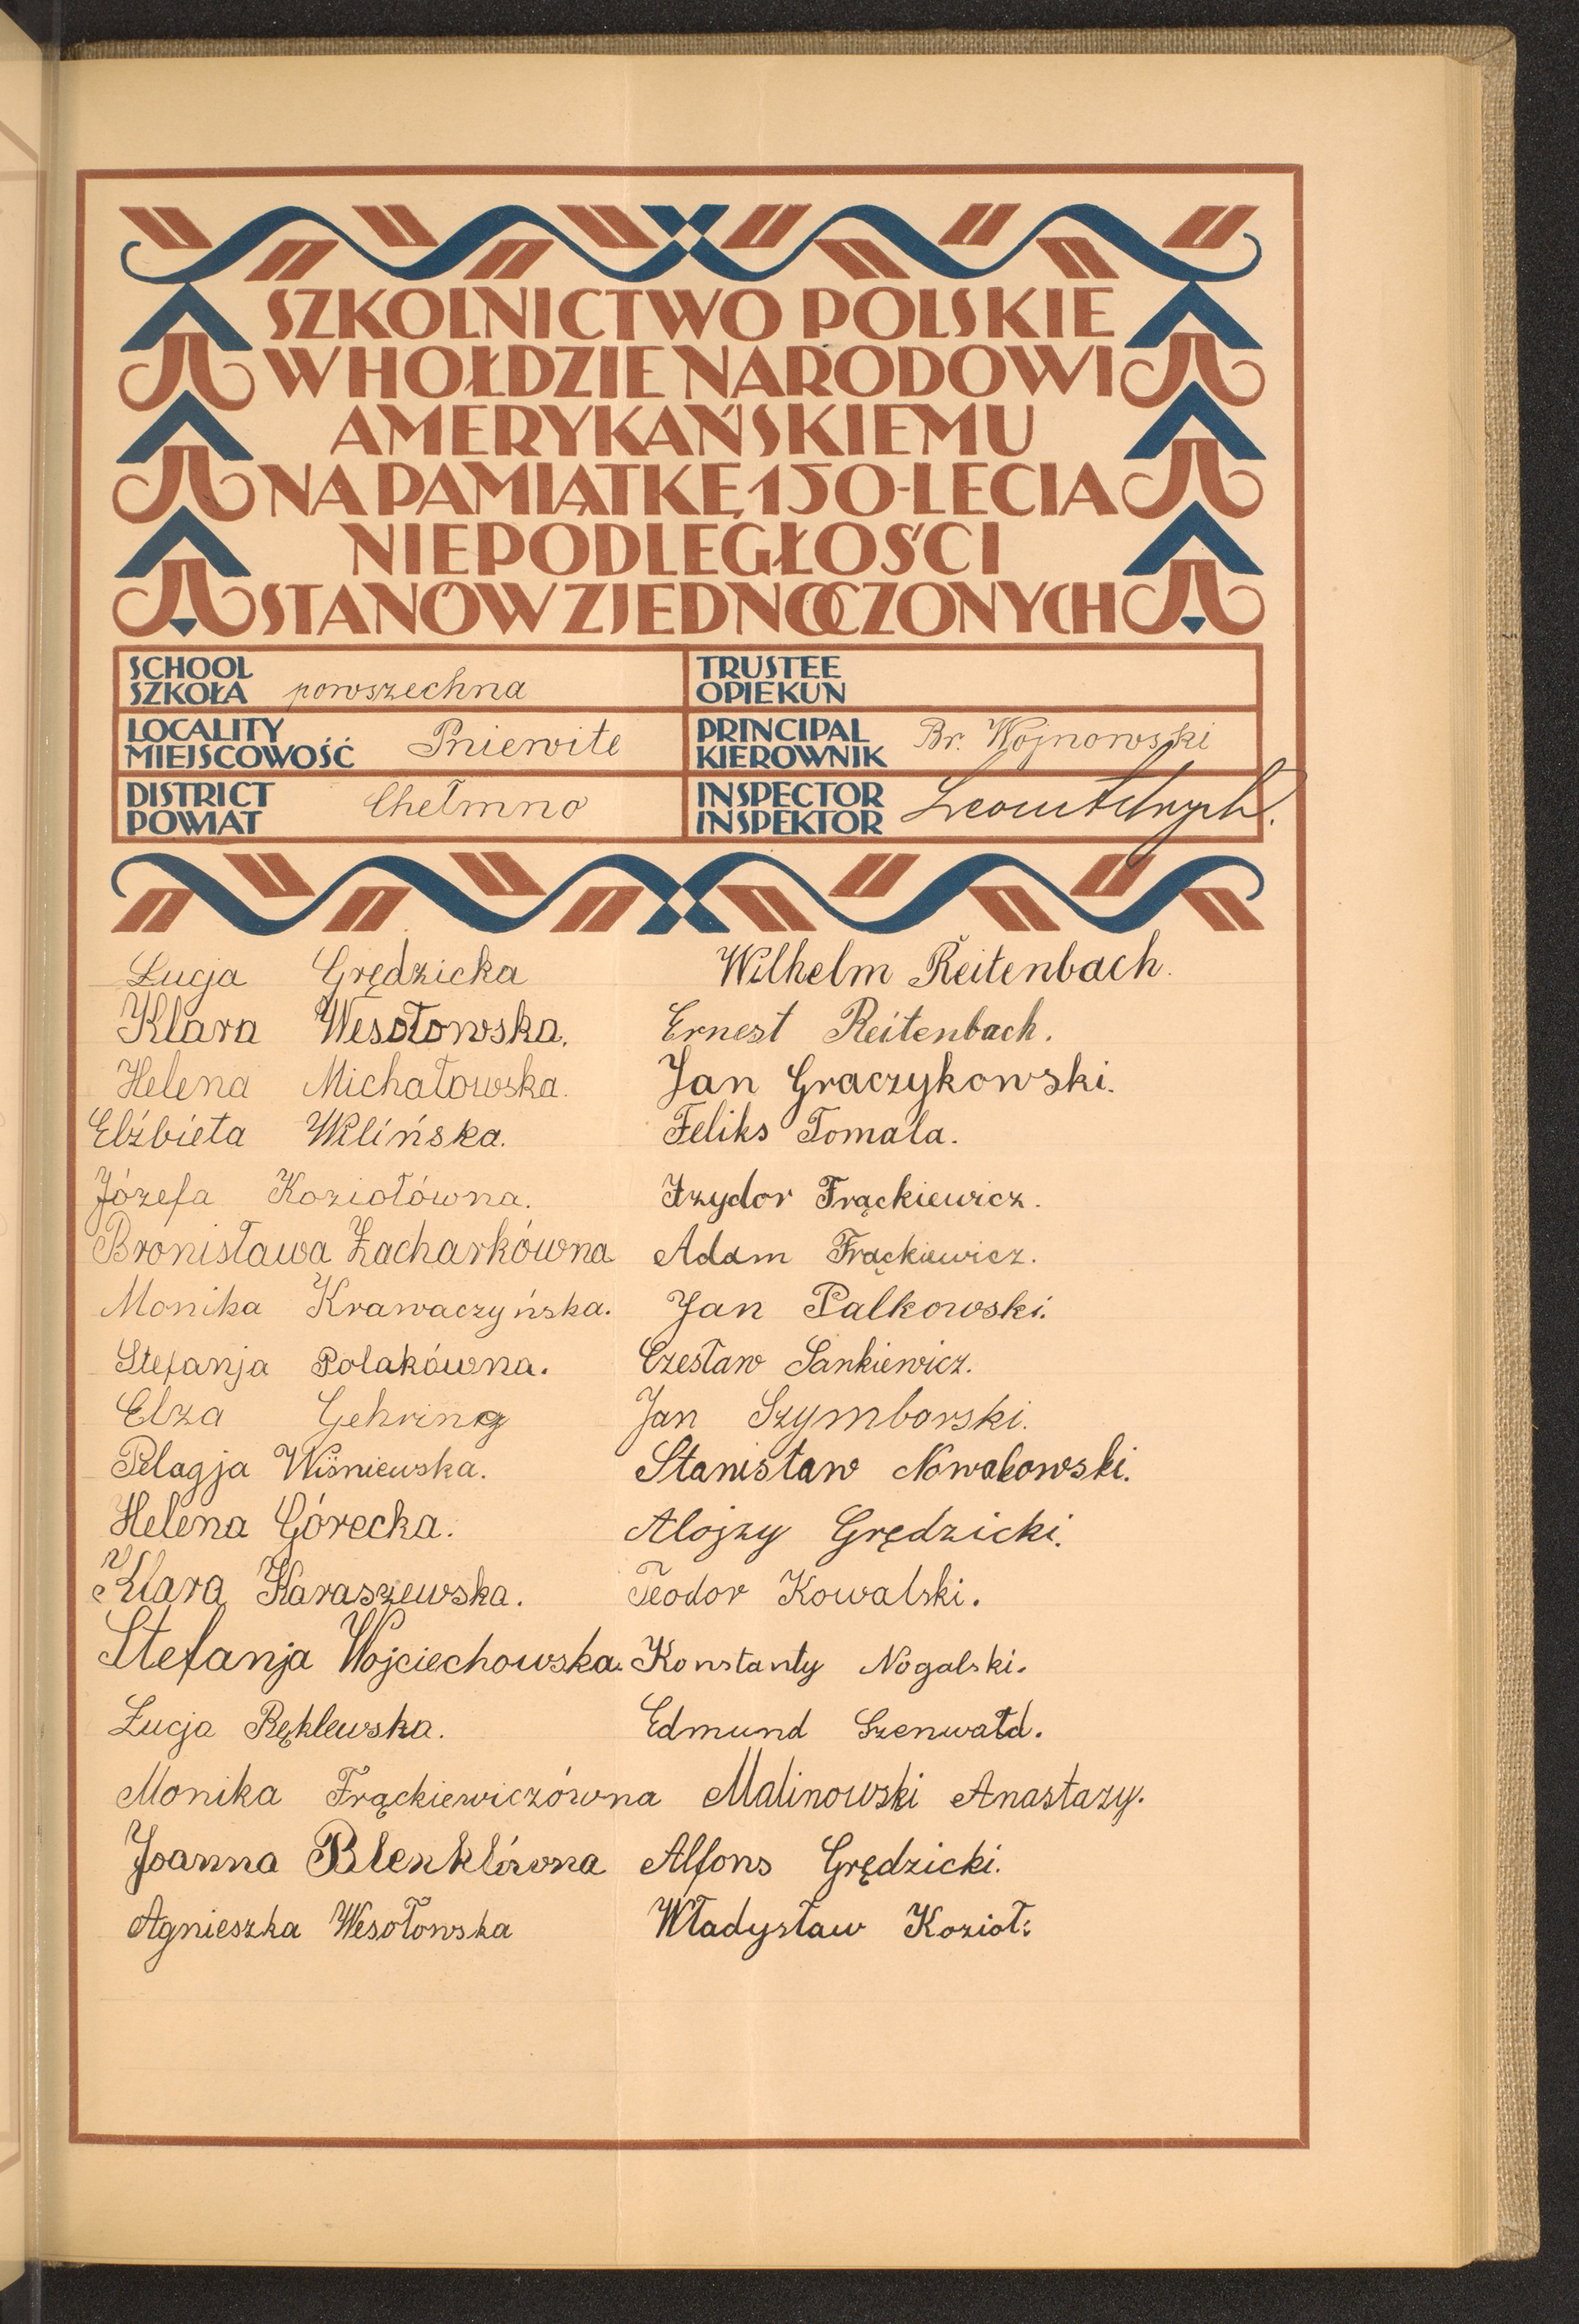 SZKOLNICTWO POLSKIE
W HOŁDZIE NARODOWI
AMERYKAŃSKIEMU
NA PAMIĄTKĘ 150-LECIA
NIEPODLEGŁOŚCI
STANÓW ZJEDNOCZONYCH
SCHOOL
SZKOŁA powszechna
TRUSTEE
OPIEKUN
LOCALITY
MIEJSCOWOŚĆ Pniewite
PRINCIPAL
KIEROWNIK Br. Wojnowski
DISTRICT
POWIAT Chełmno
INSPECTOR
INSPEKTOR
Łucja Grędzicka
Klara Wesołowska.
Helena Michałowska.
Elżbieta Wilińska.
Józefa Koziołówna.
Bronisława Zacharkówna
Monika Krawaczyńska.
Stefanja Polakówna.
Elza Gehring
Pelagja Wiśniewska.
Helena Górecka.
Klara Karaszewska.
Stefanja Wojciechowska.
Łucja Ręklewska.
Monika Frąckiewiczówna
Joanna Blenklówna
Agnieszka Wesołowska
Wilhelm Reitenbach.
Ernest Reitenbach.
Jan Graczykowski.
Feliks Tomala.
Izydor Frąckiewicz.
Adam Frąckiewicz.
Jan Palkowski.
Czesław Sankiewicz.
Jan Szymborski.
Stanisław Nowakowski.
Alojzy Grędzicki.
Teodor Kowalski.
Konstanty Nogalski.
Edmund Szenwałd.
Malinowski Anastazy.
Alfons Grędzicki.
Władysław Kozioł: